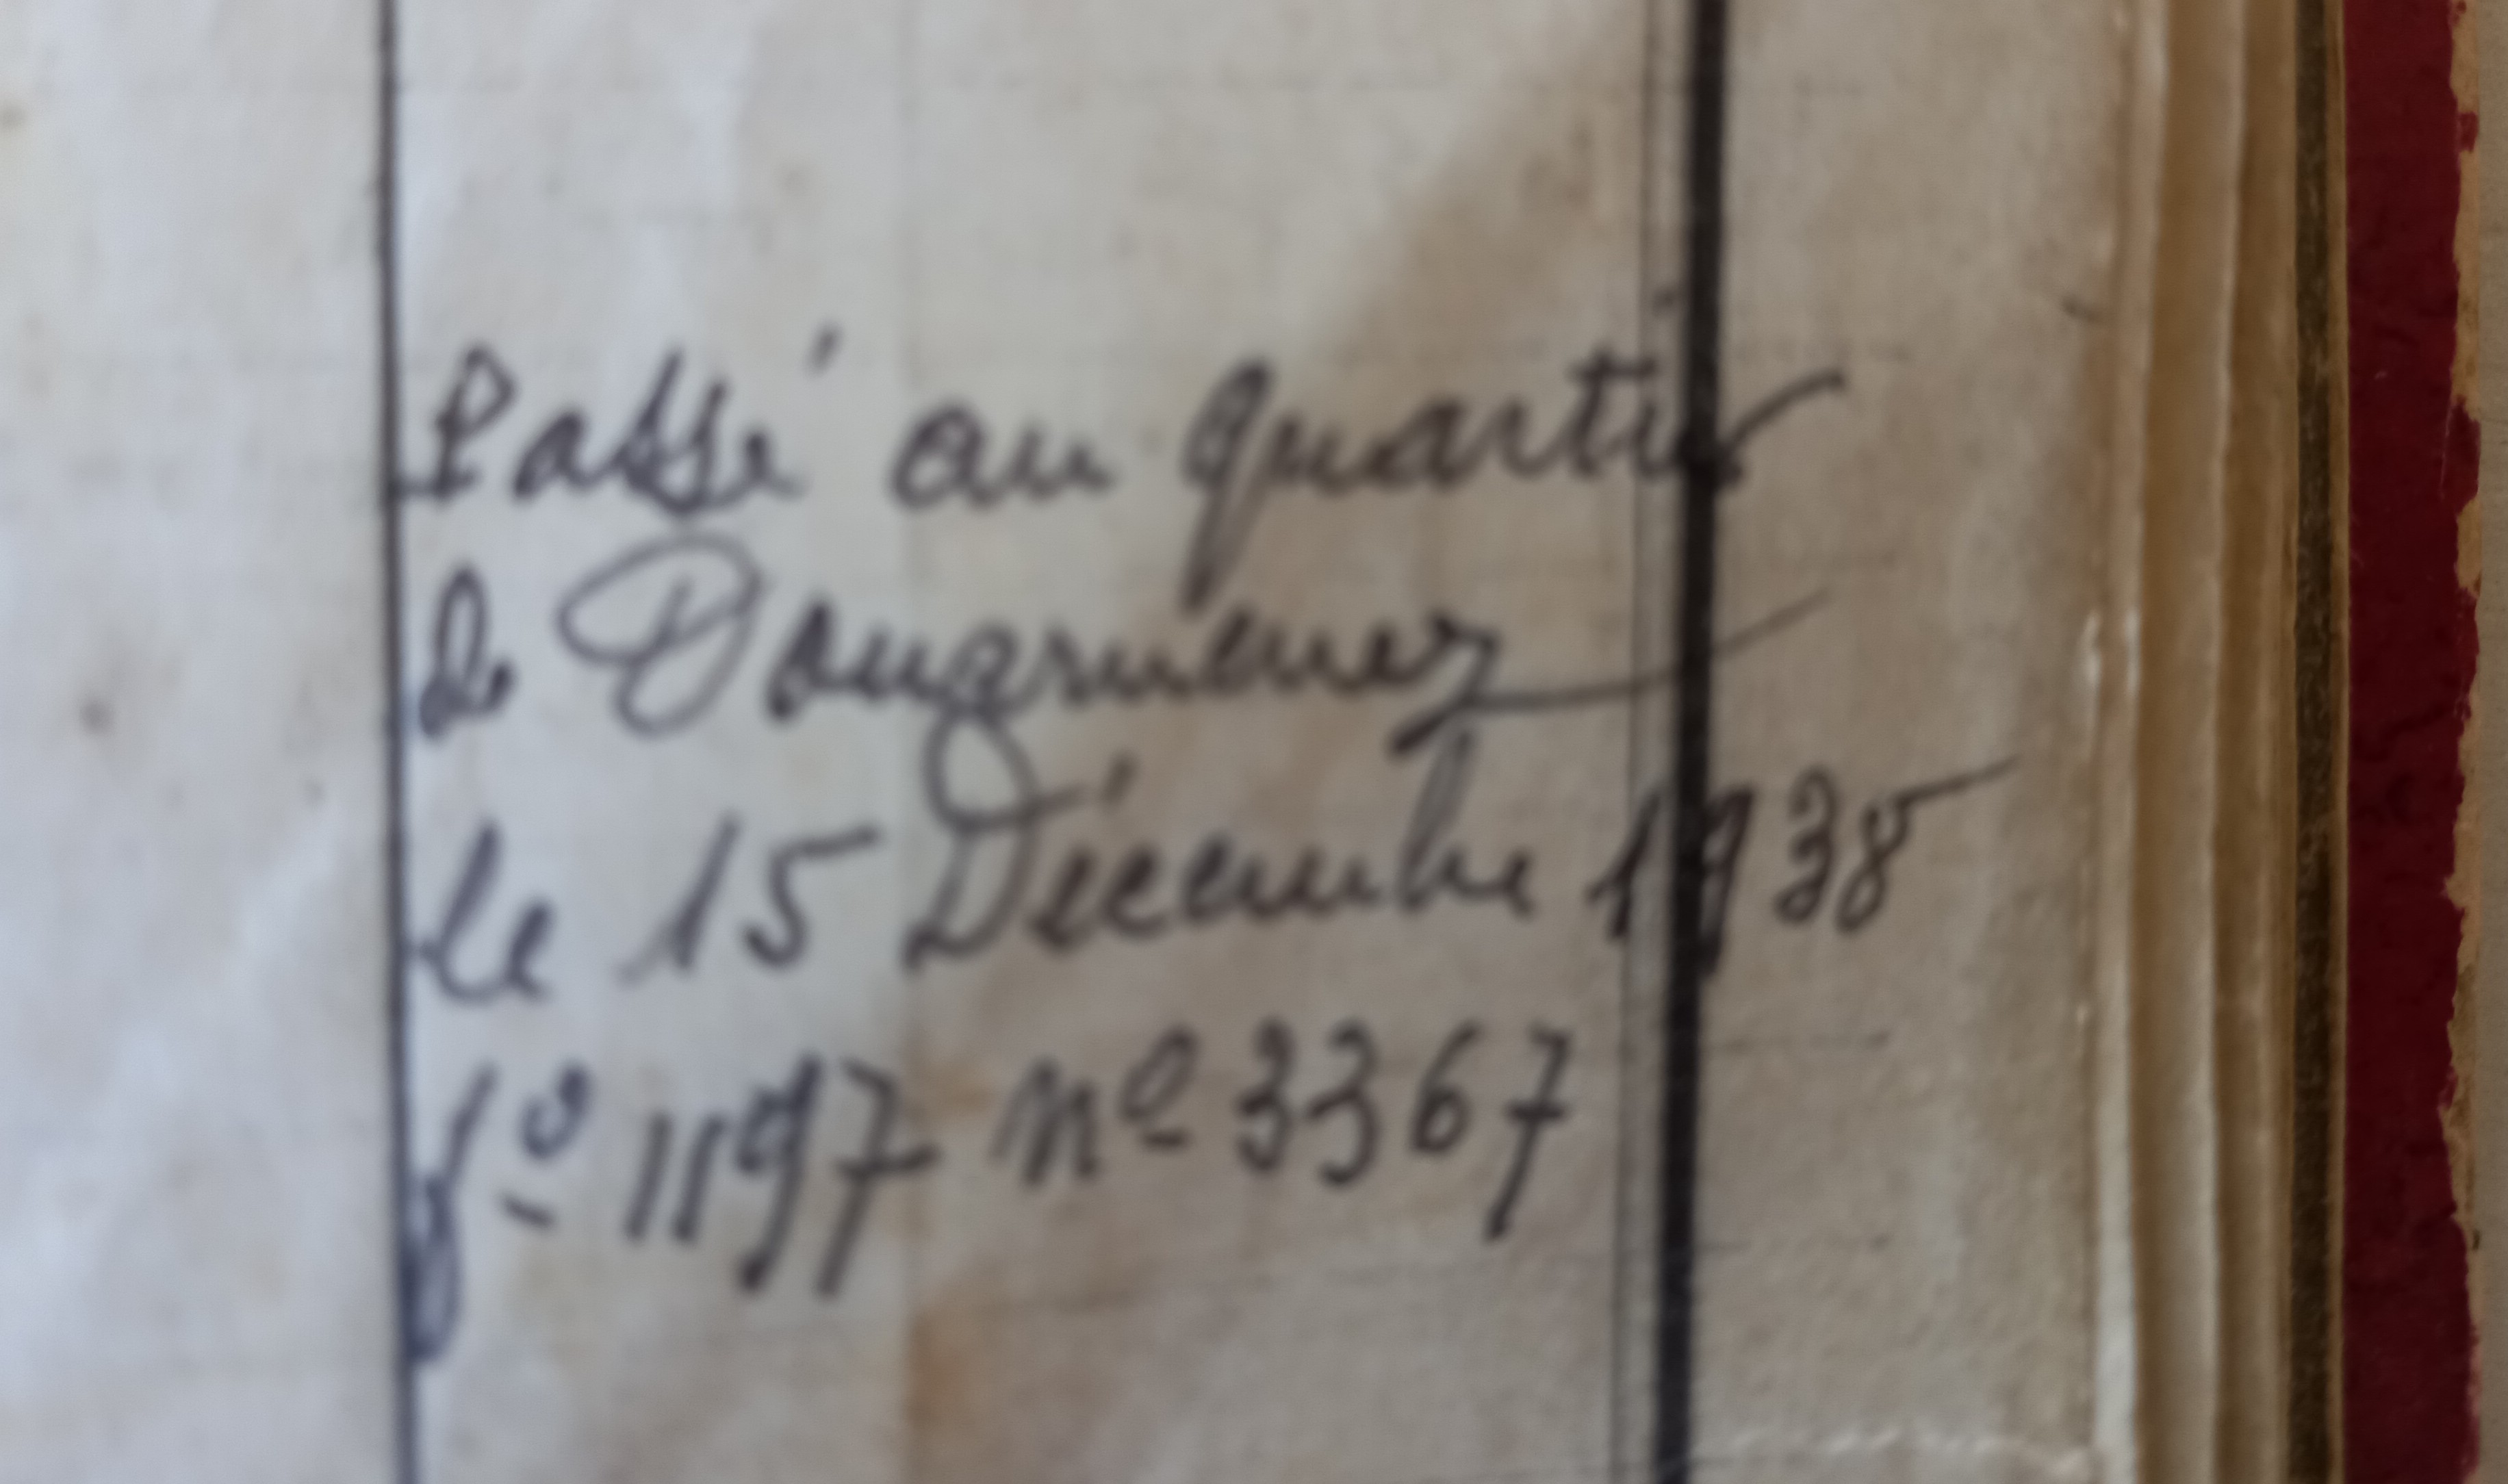 Passé au quartier
de Douarnenez
le 15 Décembre 1938
fº 1197 nº 3367